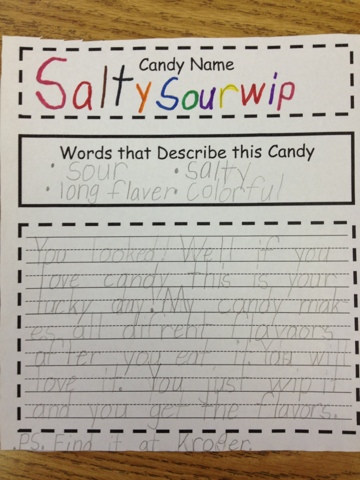 Candy Name
Salty Sourwip
Words that Describe this Candy
• sour • salty
• long flaver • colorful
You looked! Well if you
love candy this is your
lucky day! My candy mak
es all difrent flavoors
after you eat it. You will
love it. You just wip it
and you get the flavors.
.PS. Find it at Kroger.